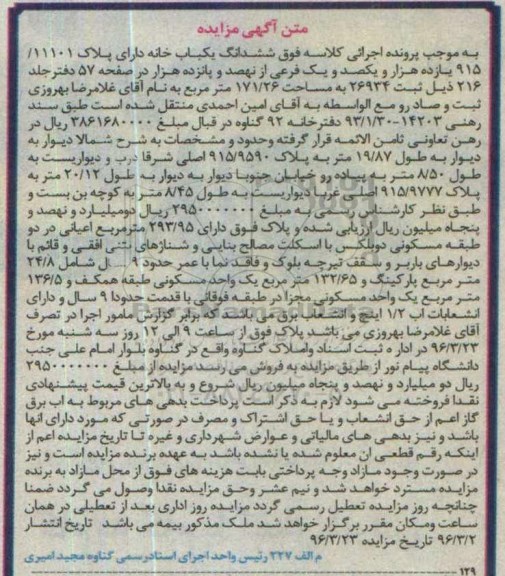 متن آگهی مزایده
به موجب پرونده اجرائی کلاسه فوق ششدانگ یکباب خانه دارای پلاک ۱۱۱۰۱/
۹۱۵ یازده هزار و یکصد و یک فرعی از نهصد و پانزده هزار در صفحه ۵۷ دفترجلد
۲۱۶ ذیل ثبت ۲۶۹۳۴ به مساحت ۱۷۱/۲۶ متر مربع به نام آقای غلامرضا بهروزی
ثبت و صادر و مع الواسطه به آقای امین احمدی منتقل شده است طبق سند
رهنی ۱۴۲۰۳-۹۳/۱/۳۰ دفترخانه ۹۲ گناوه در قبال مبلغ ۳۸۶۱۶۸۰۰۰۰ ریال در
رهن تعاونی ثامن الائمه قرار گرفته وحدود و مشخصات به شرح شمالا دیوار به
دیوار به طول ۱۹/۸۷ متر به پلاک ۹۱۵/۹۵۹۰ اصلی شرقا درب و دیواریست به
طول ۸/۵۰ متر به پیاده رو خیابان جنوبا دیوار به دیوار به طول ۲۰/۱۲ متر به
پلاک ۹۱۵/۹۷۷۷ اصلی غربا دیواریست به طول ۸/۴۵ متر به کوچه بن بست و
طبق نظر کارشناس رسمی به مبلغ ۲۹۵۰۰۰۰۰۰۰ ریال دومیلیارد و نهصد و
پنجاه میلیون ریال ارزیابی شده و پلاک فوق دارای ۲۹۳/۹۵ مترمربع اعیانی در دو
طبقه مسکونی دوبلکس با اسکلت مصالح بنایی و شناژهای بتنی افقی و قائم با
دیوارهای باربر و سقف تیرچه بلوک و فاقد نما با عمر حدود ۹ سال شامل ۲۴/۸
متر مربع پارکینگ و ۱۳۲/۶۵ متر مربع یک واحد مسکونی طبقه همکف و ۱۳۶/۵
متر مربع یک واحد مسکونی مجزا در طبقه فوقانی با قدمت حدودا ۹ سال و دارای
انشعابات اب ۱/۲ اینچ و انشعاب برق می باشد که برابر گزارش مامور اجرا در تصرف
آقای غلامرضا بهروزی می باشد پلاک فوق از ساعت ۹ الی ۱۲ روز سه شنبه مورخ
۹۶/۳/۲۳ در اداره ثبت اسناد واملاک گناوه واقع در گناوه بلوار امام علی جنب
دانشگاه پیام نور از طریق مزایده به فروش می رسد مزایده از مبلغ ۲۹۵۰۰۰۰۰۰۰
ریال دو میلیارد و نهصد و پنجاه میلیون ریال شروع و به بالاترین قیمت پیشنهادی
نقدا فروخته می شود لازم به ذکر است پرداخت بدهی های مربوط به اب برق
گاز اعم از حق انشعاب و یا حق اشتراک و مصرف در صورتی که مورد دارای انها
باشد و نیز بدهی های مالیاتی و عوارض شهرداری و غیره تا تاریخ مزایده اعم از
اینکه رقم قطعی ان معلوم شده یا نشده باشد به عهده برنده مزایده است و نیز
در صورت وجود مازاد وجه پرداختی بابت هزینه های فوق از محل مازاد به برنده
مزایده مسترد خواهد شد و نیم عشر وحق مزایده نقدا وصول می گردد ضمنا
چنانچه روز مزایده تعطیل رسمی گردد مزایده روز اداری بعد از تعطیلی در همان
ساعت ومکان مقرر برگزار خواهد شد ملک مذکور بیمه می باشد تاریخ انتشار
۹۶/۳/۲ تاریخ مزایده ۹۶/۳/۲۳
م الف ۲۲۷ رئیس واحد اجرای اسناد رسمی گناوه مجید امیری
۱۲۹